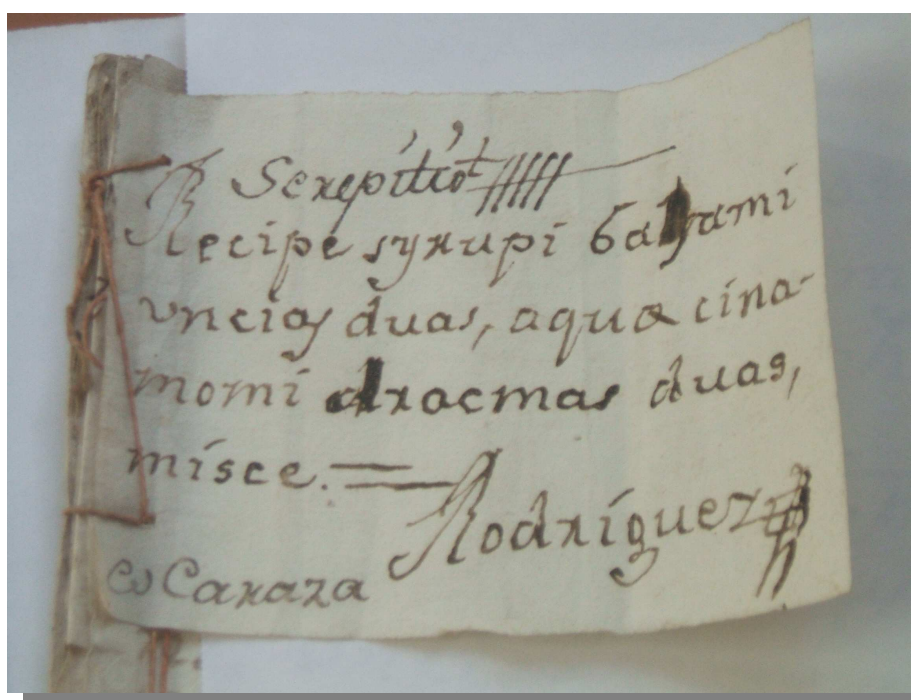 R Serepitiot
Recipe syrupi balsami
vncias duas, aquæ cina-
momi dracmas duas,
misce.
Rodríguez
Caraza